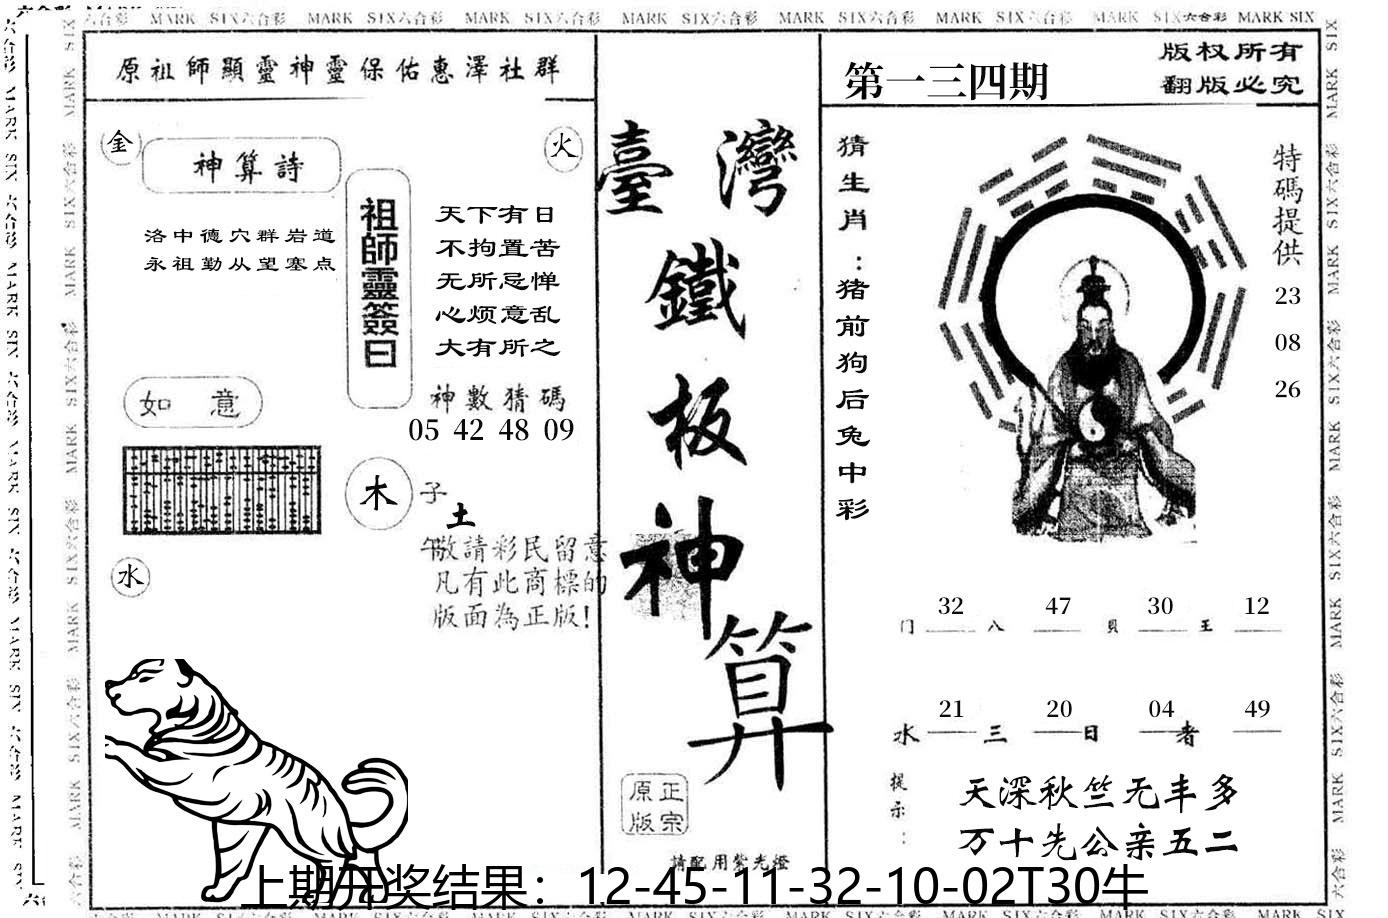 MARK SIX六合彩 MARK SIX六合彩 MARK SIX六合彩 MARK SIX六合彩 MARK SIX六合彩 MARK SIX六合彩 MARK SIX六合彩 MARK SIX
原祖師顯靈神靈保佑惠澤社群
金
火
神算詩
洛中德穴群岩道
永祖勤从望塞点
祖師靈簽曰
天下有日
不拘置苦
无所忌惮
心烦意乱
大有所之
神數猜碼
05 42 48 09
如 意
木
子
土
午
水
敬請彩民留意
凡有此商標的
版面為正版!
臺灣
鐵
板
神
算
原正
版宗
請配用紫光燈
第一三四期
版权所有
翻版必究
猜生肖:猪前狗后兔中彩
特碼提供
23
08
26
32 47 30 12
门 八 貝 王
21 20 04 49
水 三 日 者
提示:
天深秋竺无丰多
万十先公亲五二
上期开奖结果：12-45-11-32-10-02T30牛